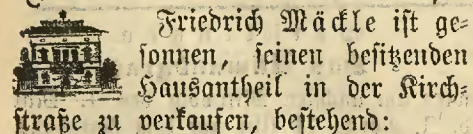 Friedrich Mäckle ist ge-
sonnen, seinen besitzenden
Hausantheil in der Kirch-
straße zu verkaufen, bestehend: